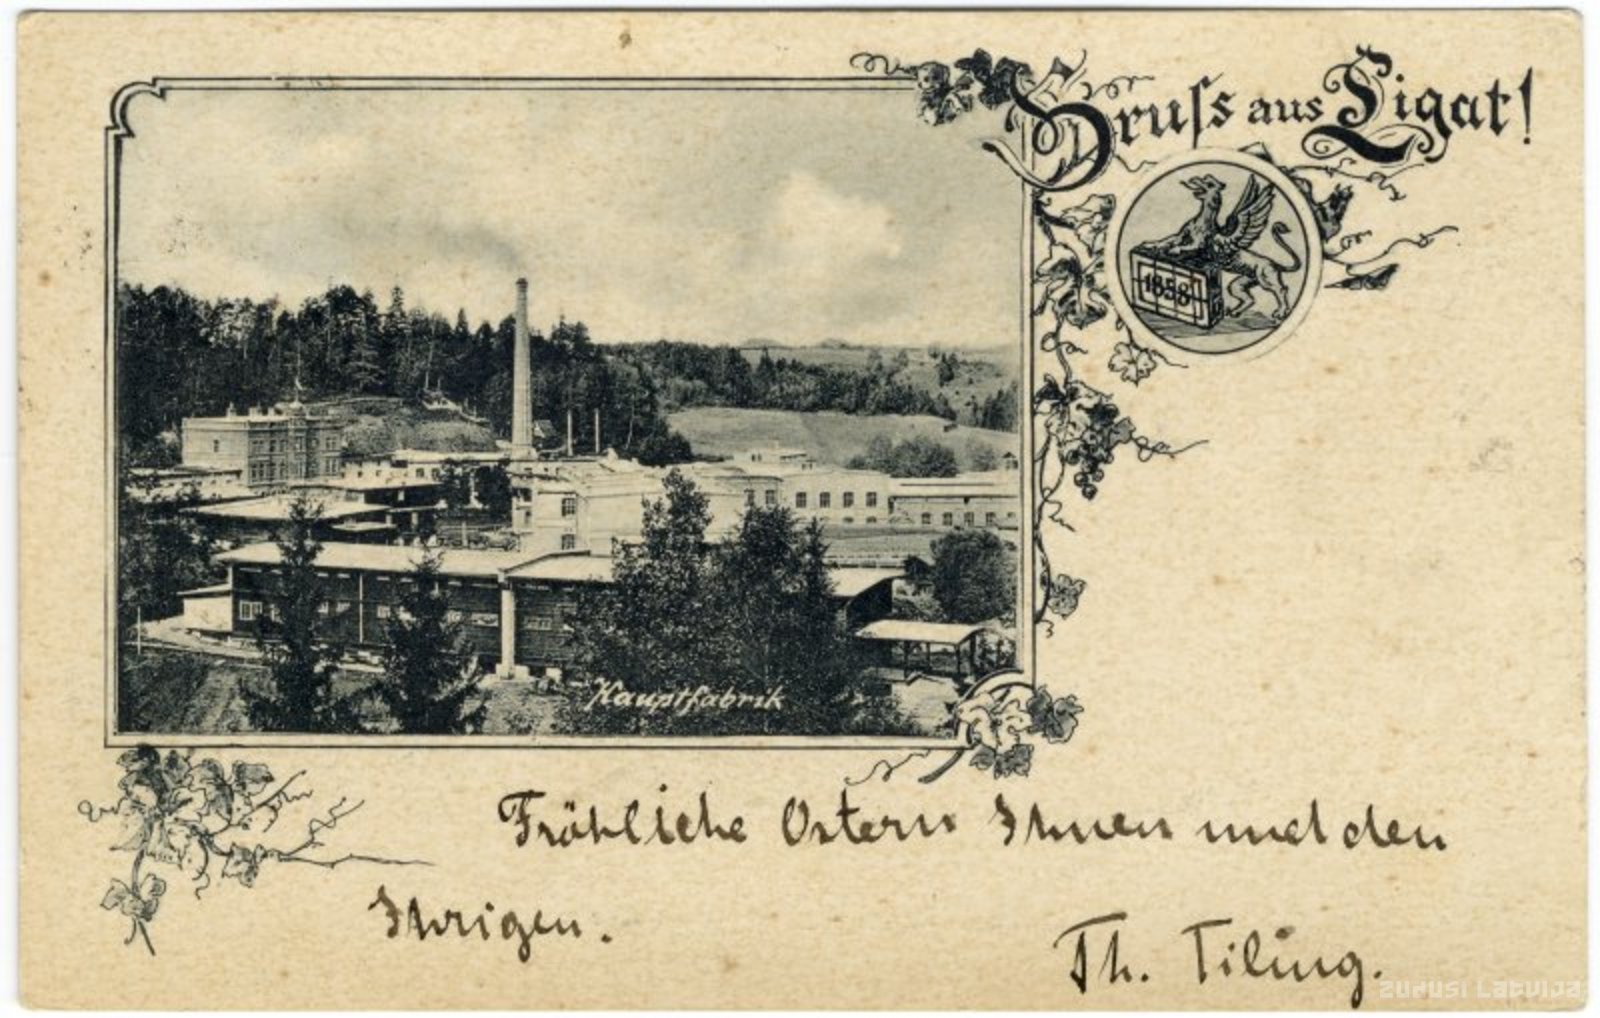 Gruss aus Ligat!
1858
Hauptfabrik
Fröhliche Ostern Ihnen und den
Ihrigen.
Th. Tiling.
zudusi Latvija